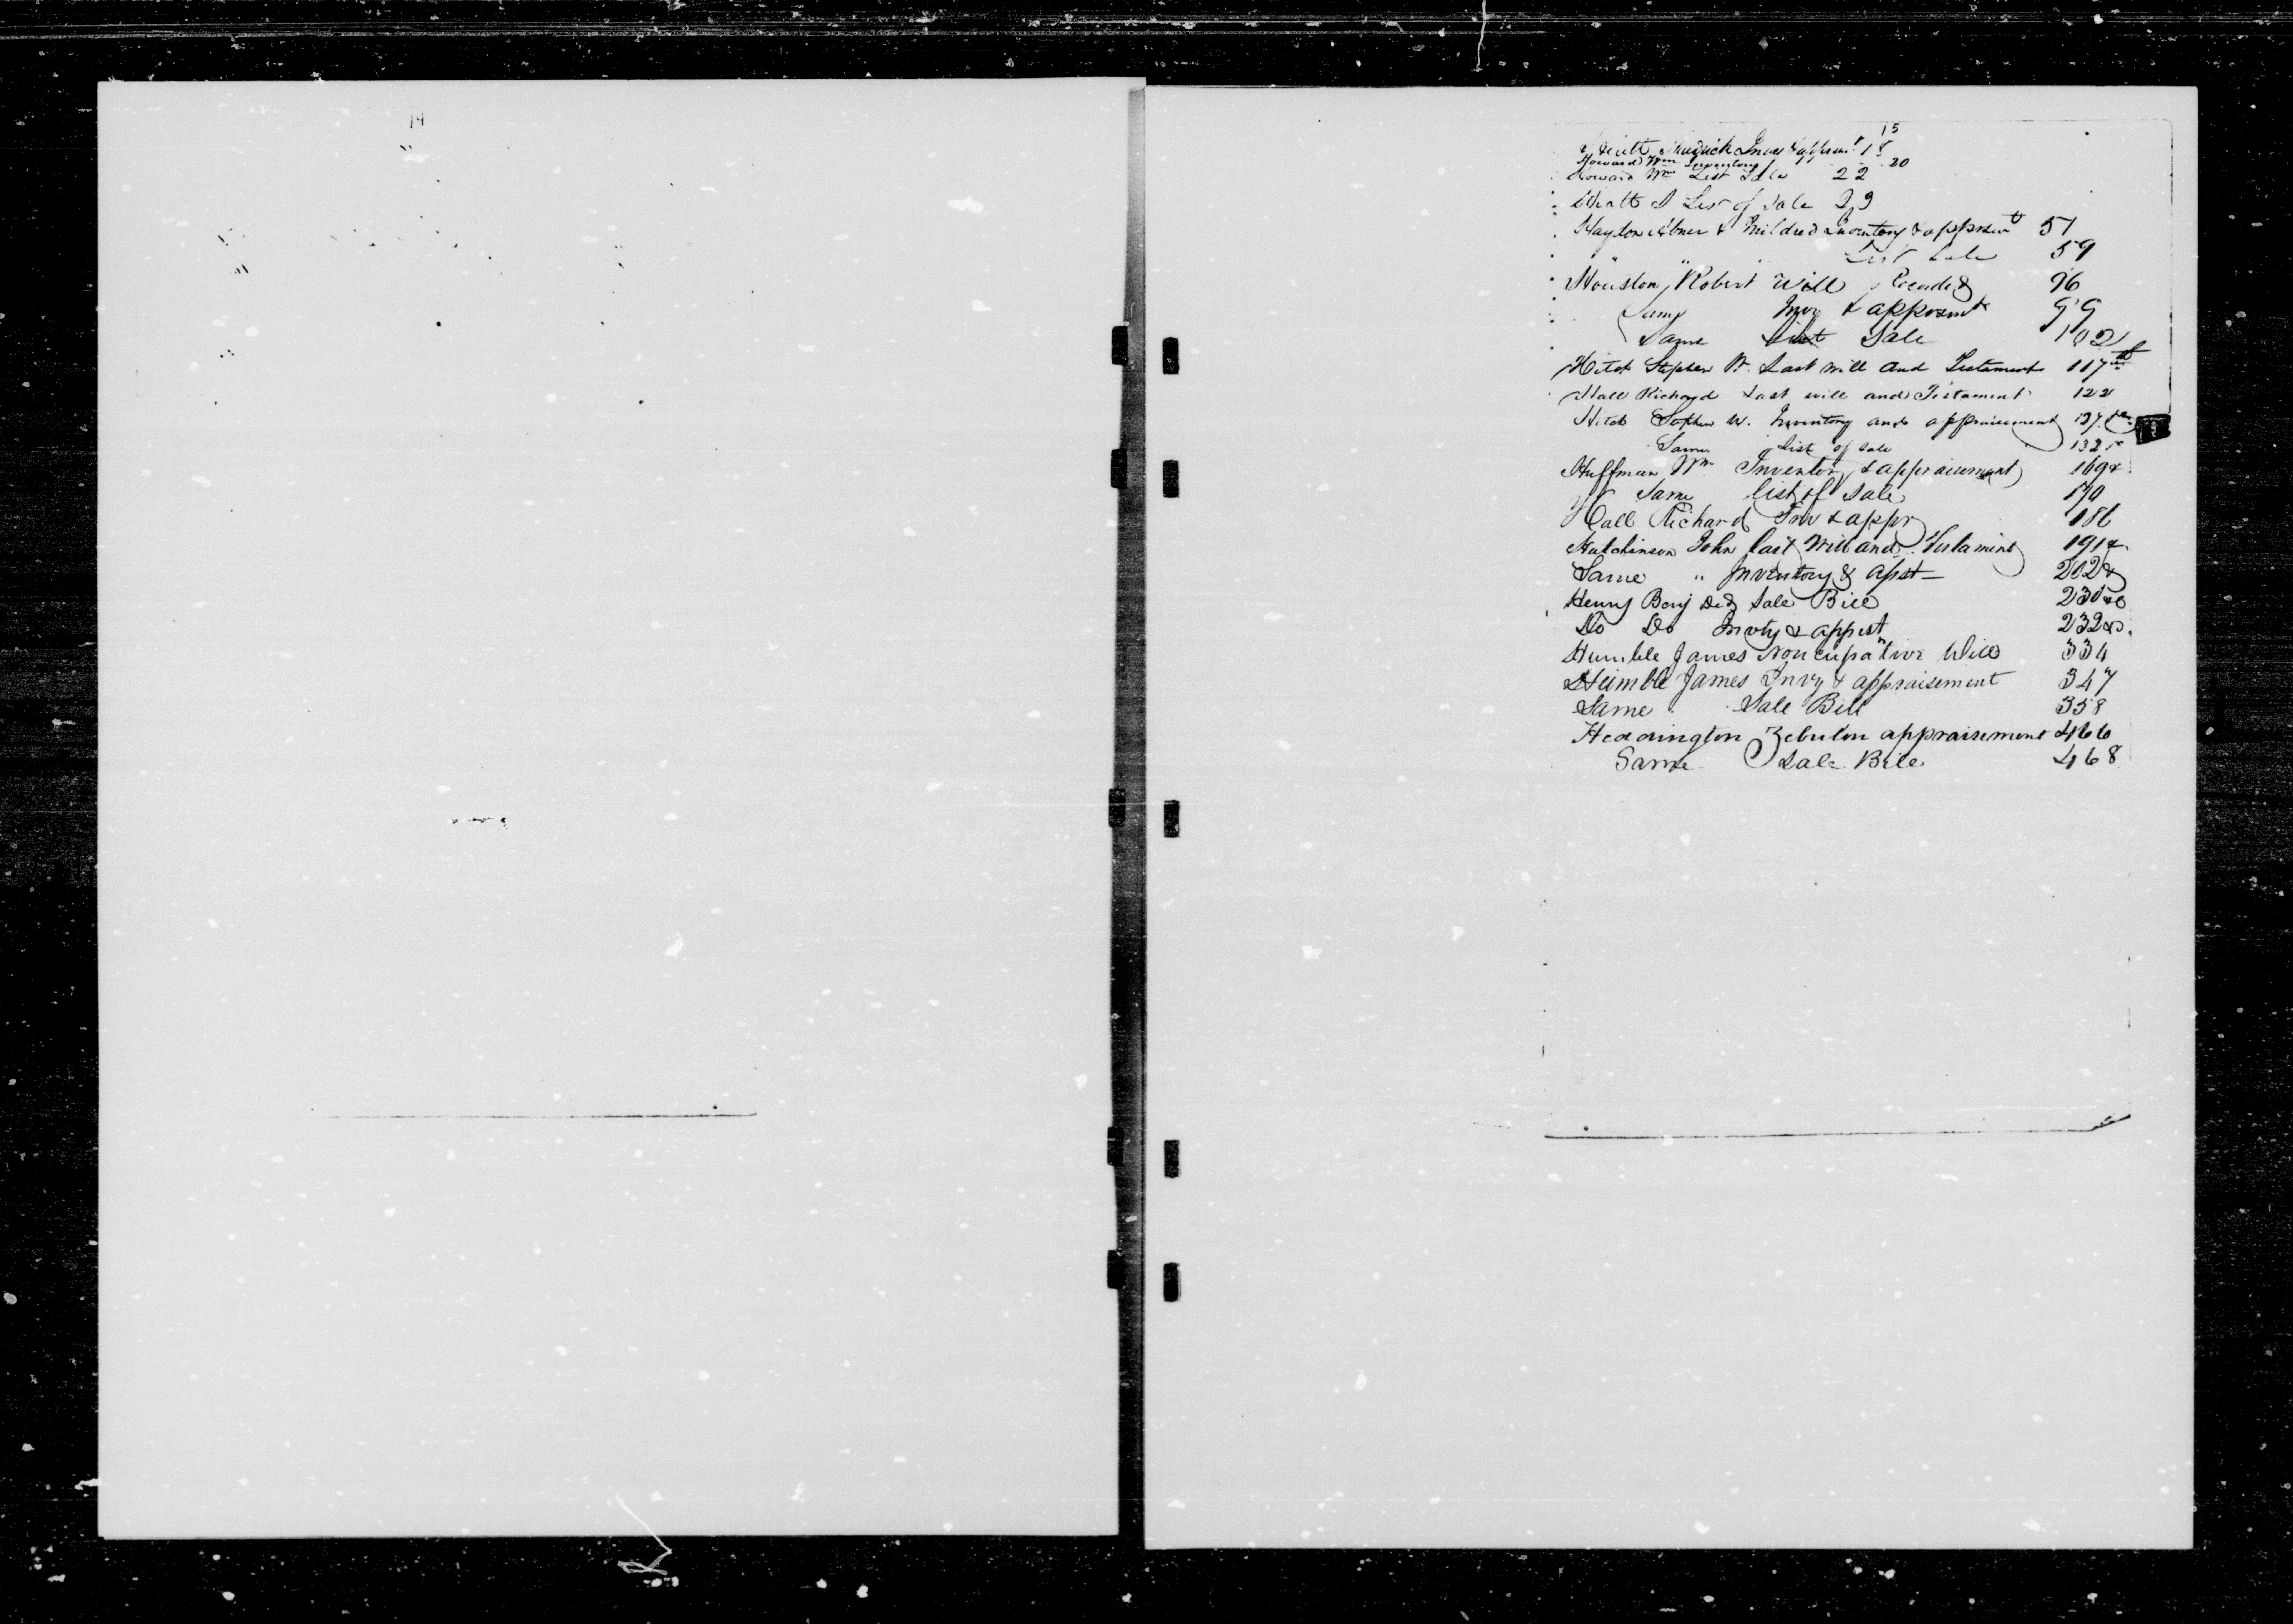 14
15
Hiatt Fredrick Inv & apprsmt 18
Howard Wm Inventory 20
Howard Wm List Sale 22
Hiatt F List of Sale 29
Hayton Abner & Mildred Inventory & apprsmt 57
" " List Sale 59
Houston, Robert Will Recorded 96
Same Inv & apprsmt 99
Same List Sale 102
Hitch Stephen W. Last will and Testament 117
Hall Richard Last will and Testament 122
Hitch Stephen W. Inventory and appraisement 127
Same List of Sale 132
Huffman Wm Inventory & appraisement 169 &
Same list of Sale 170
Hall Richard Inv & appr 186
Hutchinson John last Will and Testament 191 &
Same " Inventory & apst 202 &
Henry Benj Decd Sale Bill 230 &c
Do Do Invty & appist 232 &c.
Humble James Noncupative Will 334
Humble James Invy & appraisement 347
Same Sale Bill 358
Heddington Zebulon appraisement 466
Same Sale Bill 468